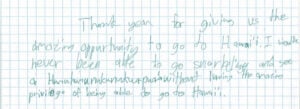 Thank you for giving us the
amazing opportunity to go to Hawai'i. I would
never been able to go snorkeling and see
a without having the amazing
privilege of being able to go to Hawai'i.